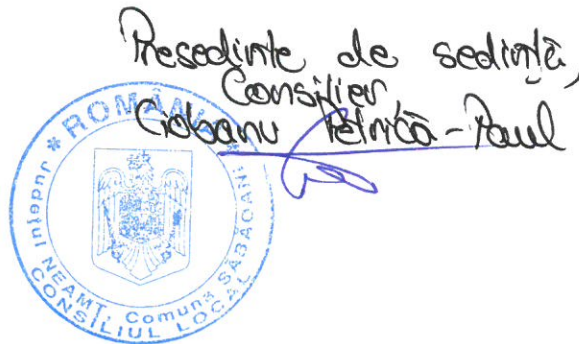 Presedinte de sedință,
Consilier,
Ciobanu Petrică-Paul
* ROMÂNIA *
Județul NEAMȚ, Comuna SĂBĂOANI
CONSILIUL LOCAL